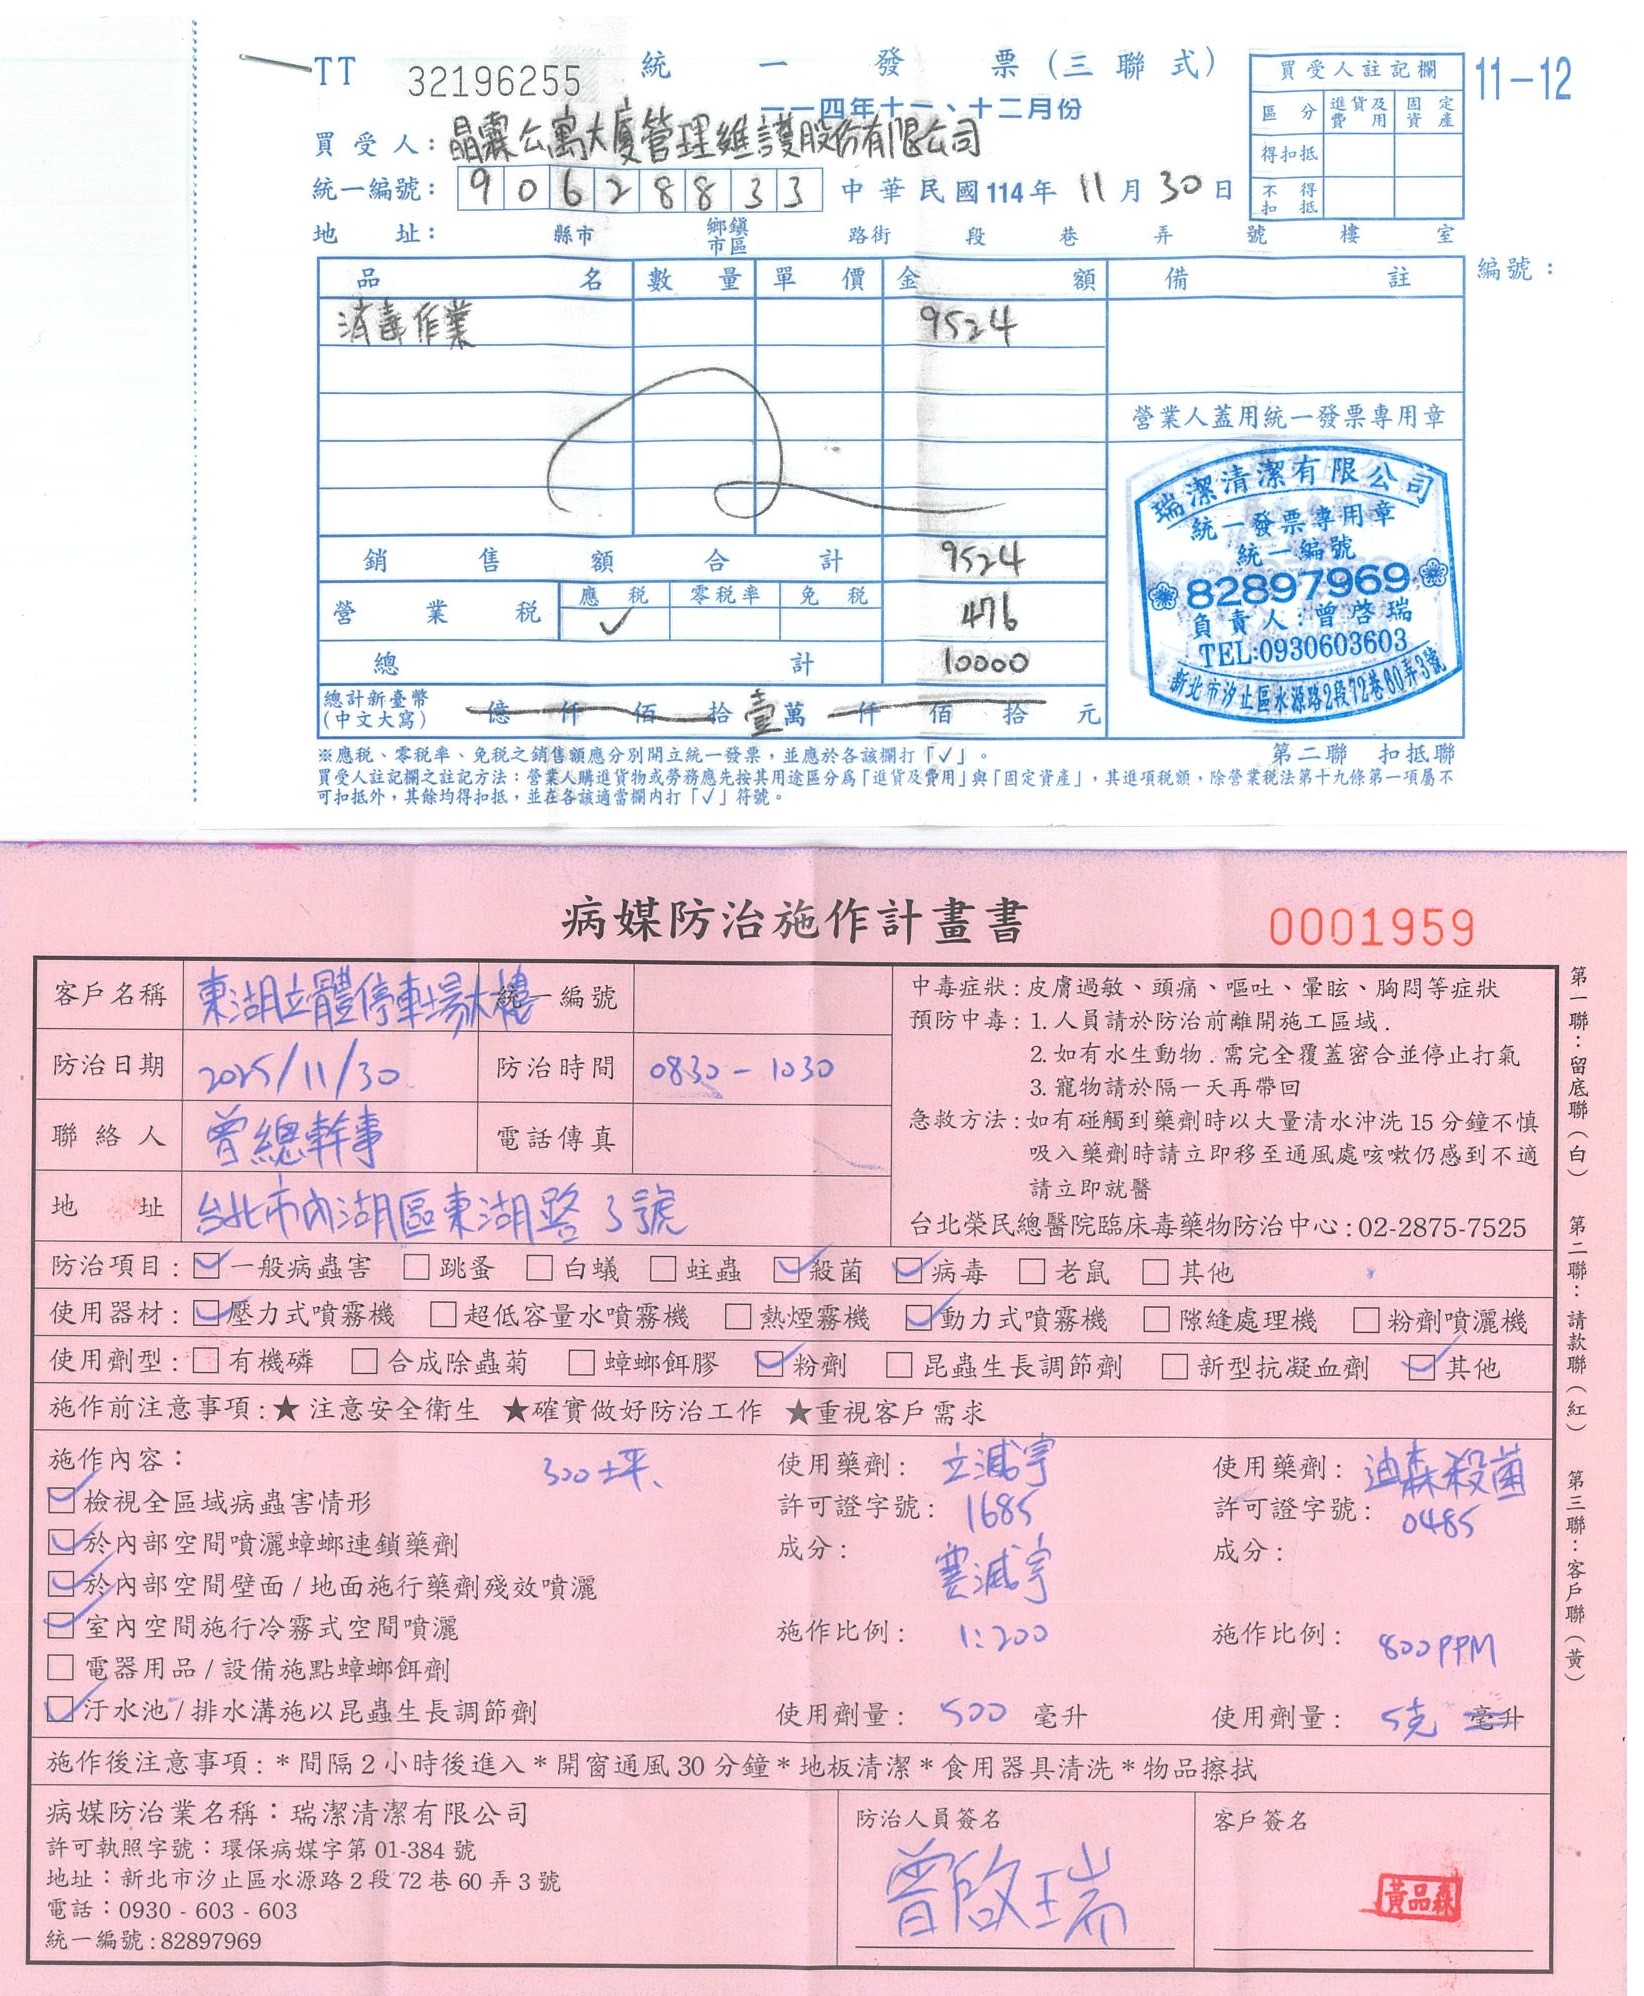 TT 32196255 統一發票(三聯式)
一一四年十一、十二月份
買受人註記欄 11-12
區分 進貨及費用 固定資產
得扣抵
不得扣抵
買受人：晶霖公寓大廈管理維護股份有限公司
統一編號：90628833 中華民國114年11月30日
地址： 縣市 鄉鎮市區 路街 段 巷 弄 號 樓 室
品名 數量 單價 金額 備註 編號：
消毒作業 9524
營業人蓋用統一發票專用章
瑞潔清潔有限公司
統一發票專用章
統一編號
82897969
負責人：曾啓瑞
TEL:0930603603
新北市汐止區水源路2段72巷60弄3號
銷售額合計 9524
營業稅 應稅 ✓ 零稅率 免稅 476
總計 10000
總計新臺幣(中文大寫) 億 仟 佰 拾 壹萬 仟 佰 拾 元
※應稅、零稅率、免稅之銷售額應分別開立統一發票，並應於各該欄打「✓」。
第二聯 扣抵聯
買受人註記欄之註記方法：營業人購進貨物或勞務應先按其用途區分為「進貨及費用」與「固定資產」，其進項稅額，除營業稅法第十九條第一項屬不
可扣抵外，其餘均得扣抵，並在各該適當欄內打「✓」符號。
病媒防治施作計畫書 0001959
客戶名稱 東湖立體停車場大樓 統一編號
防治日期 2025/11/30 防治時間 0830-1030
聯絡人 曾總幹事 電話傳真
地址 台北市內湖區東湖路3號
中毒症狀：皮膚過敏、頭痛、嘔吐、暈眩、胸悶等症狀
預防中毒：1.人員請於防治前離開施工區域.
2.如有水生動物.需完全覆蓋密合並停止打氣
3.寵物請於隔一天再帶回
急救方法：如有碰觸到藥劑時以大量清水沖洗15分鐘不慎
吸入藥劑時請立即移至通風處咳嗽仍感到不適
請立即就醫
台北榮民總醫院臨床毒藥物防治中心：02-2875-7525
防治項目：☑一般病蟲害 □跳蚤 □白蟻 □蛀蟲 ☑殺菌 ☑病毒 □老鼠 □其他
使用器材：☑壓力式噴霧機 □超低容量水噴霧機 □熱煙霧機 ☑動力式噴霧機 □隙縫處理機 □粉劑噴灑機
使用劑型：□有機磷 □合成除蟲菊 □蟑螂餌膠 ☑粉劑 □昆蟲生長調節劑 □新型抗凝血劑 ☑其他
施作前注意事項：★注意安全衛生 ★確實做好防治工作 ★重視客戶需求
施作內容： 300坪
☑檢視全區域病蟲害情形
☑於內部空間噴灑蟑螂連鎖藥劑
☑於內部空間壁面/地面施行藥劑殘效噴灑
☑室內空間施行冷霧式空間噴灑
□電器用品/設備施點蟑螂餌劑
☑汙水池/排水溝施以昆蟲生長調節劑
使用藥劑：立滅寧
許可證字號：1685
成分：賽滅寧
施作比例：1:200
使用劑量：500 毫升
使用藥劑：迪森殺菌
許可證字號：0485
成分：
施作比例：800PPM
使用劑量：5克 毫升
施作後注意事項：＊間隔2小時後進入＊開窗通風30分鐘＊地板清潔＊食用器具清洗＊物品擦拭
病媒防治業名稱：瑞潔清潔有限公司
許可執照字號：環保病媒字第01-384號
地址：新北市汐止區水源路2段72巷60弄3號
電話：0930-603-603
統一編號：82897969
防治人員簽名
曾啟瑞
客戶簽名
黃品森
第一聯：留底聯（白） 第二聯：請款聯（紅） 第三聯：客戶聯（黃）